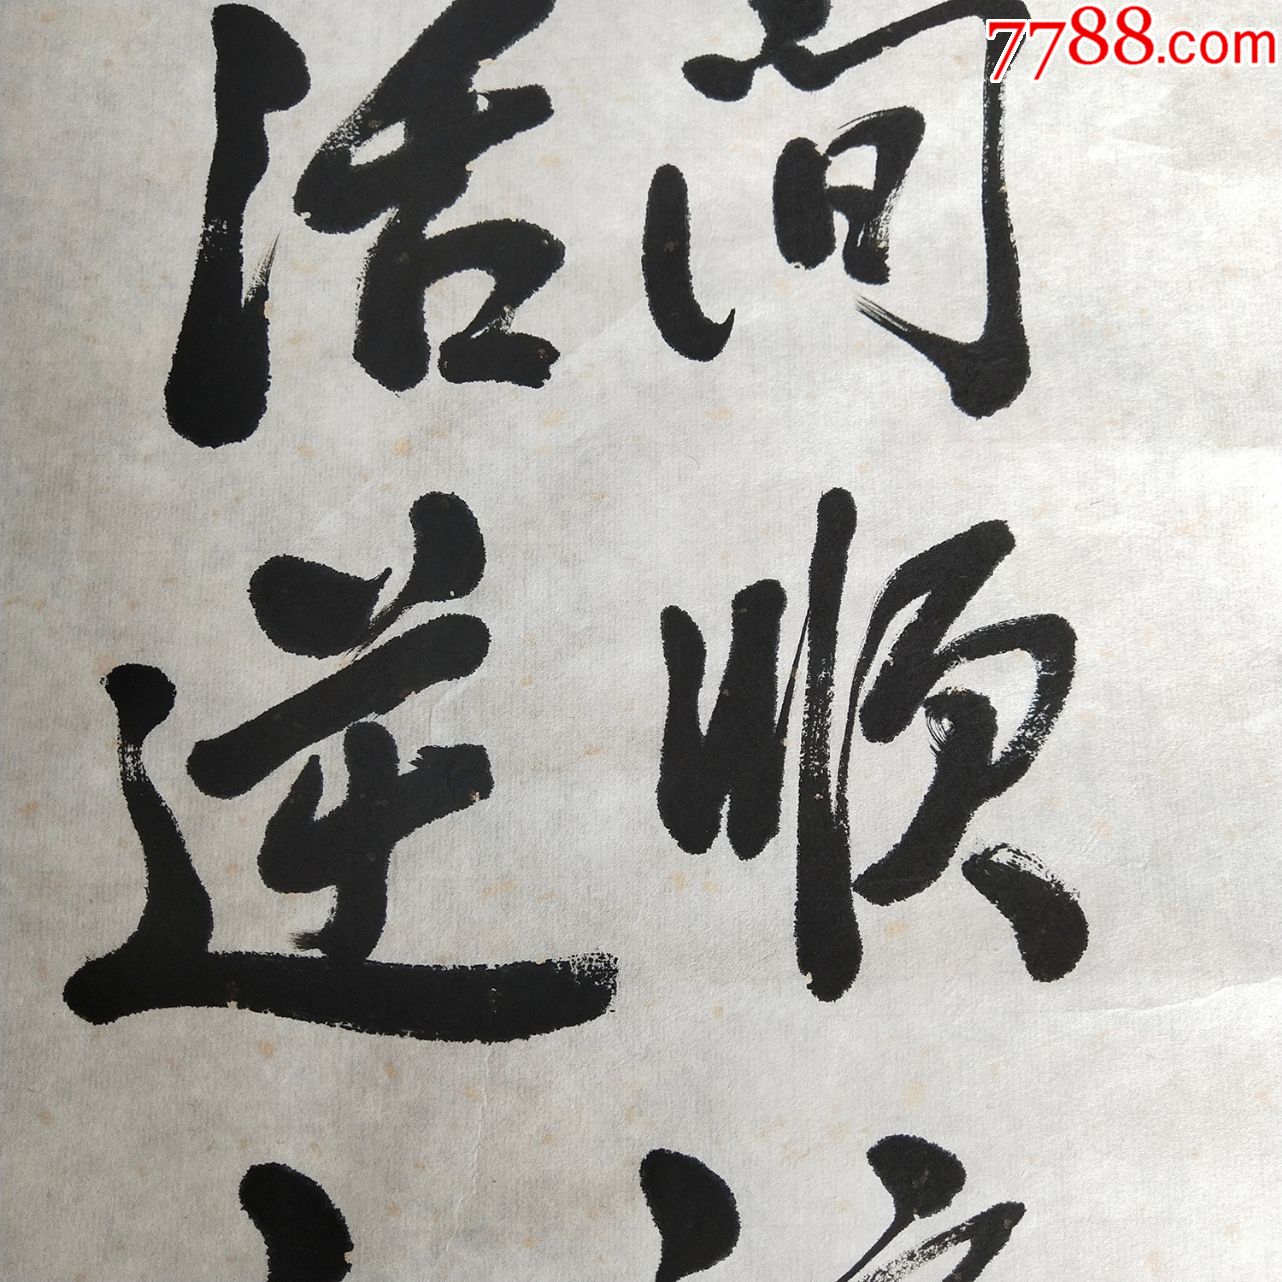 7788.com
间顺
活逆